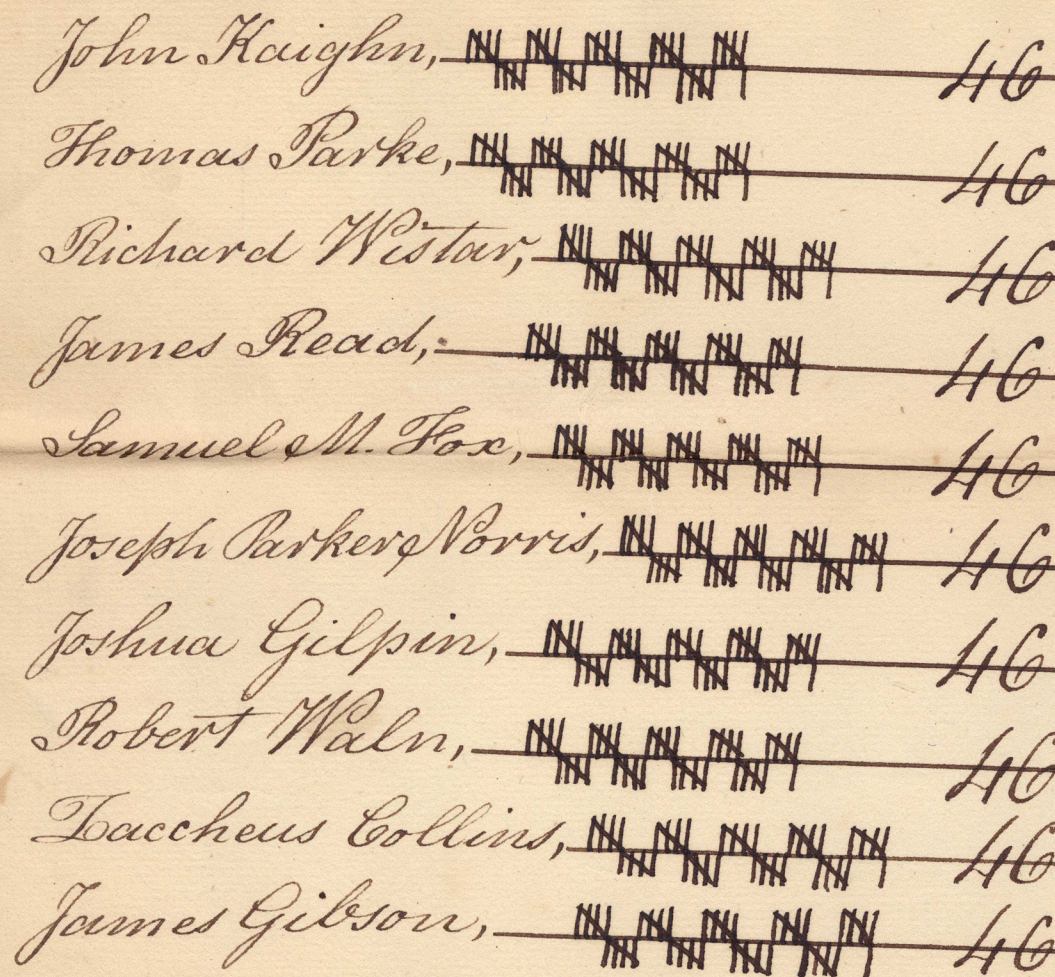 John Kaighn, 46
Thomas Parke, 46
Richard Wistar, 46
James Read, 46
Samuel M. Fox, 46
Joseph Parker Norris, 46
Joshua Gilpin, 46
Robert Waln, 46
Zaccheus Collins, 46
James Gibson, 46